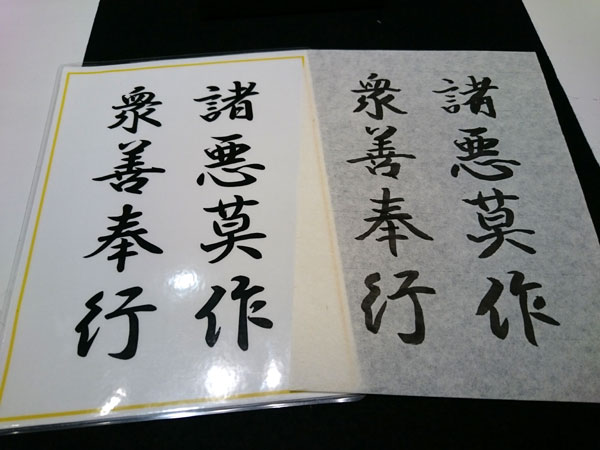 諸悪莫作
衆善奉行
諸悪莫作
衆善奉行